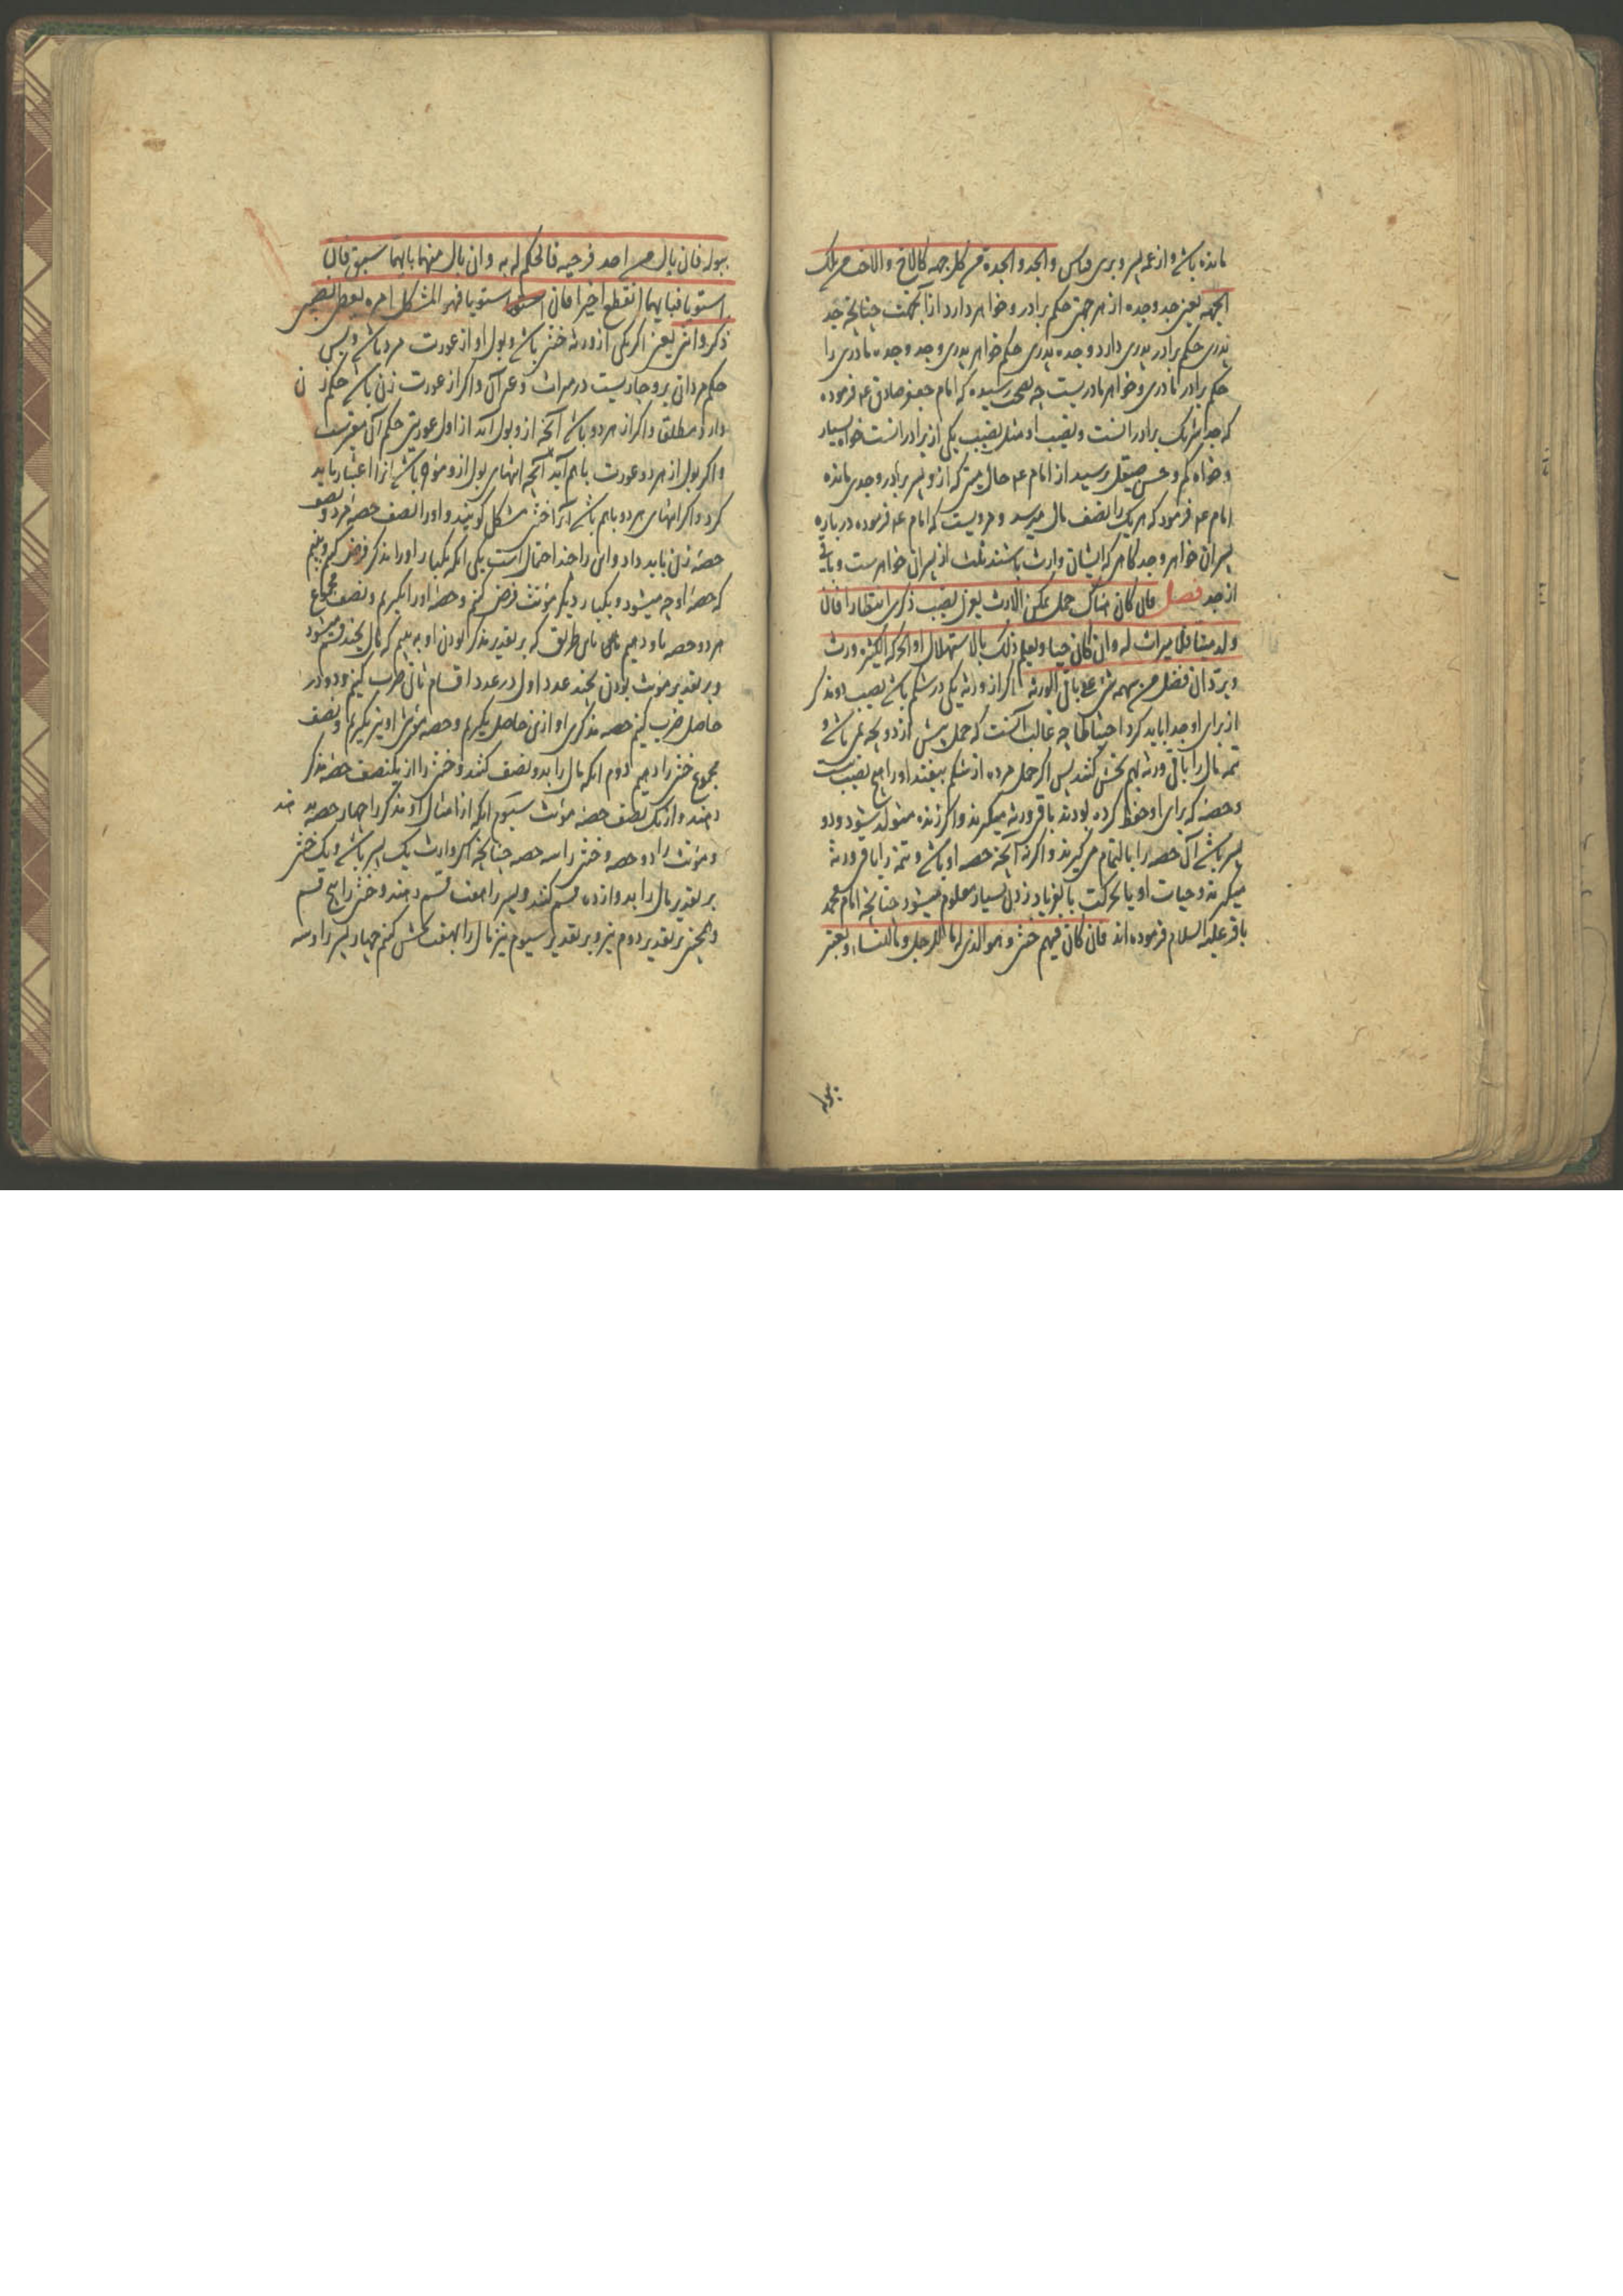 مانده باشد و از عمه پسر و برین قیاس والجد والجده من کل جهه کالاخ والاخت من تلک
الجهه یعنی جد و جده از هر جهتی حکم برادر و خواهر دارد از آنجهت چنانچه جد
پدری حکم برادر پدری دارد و جده پدری حکم خواهر پدری و جد و جده مادری را
حکم برادر مادری و خواهر مادریست چه بصحت رسیده که امام جعفر صادق عم فرموده
که جد شریک برادرانست و نصیب او مثل نصیب یکی از برادرانست خواه بسیار
و خواه کم و حسن صیقل پرسید از امام عم حال میتی که ازو پسر برادر و جدی مانده
امام عم فرمود که هر یک را نصف مال میرسد و مرویست که امام عم فرموده در باره
پسران خواهر و جد گاهی که ایشان وارث باشند ثلث از پسران خواهرست و باقی
از جد فصل فان کان هناک حمل ممکن الارث یعزل نصیب ذکرین انتظارا فان
ولد میتا فلا میراث له وان کان حیا ویعلم ذلک بالاستهلال او الحرکه الکثیره ورث
ویرد ان فضل من سهمه شیء علی باقی الورثه اگر از ورثه یکی در شکم باشد نصیب دو مذکر
از برای او جدا باید کرد احتیاطا چه غالب آنست که حمل بیش از دو بچه نمی باشد و
تتمه مال را باقی ورثه بهم بخش کنند پس اگر حمل مرده از شکم بیفتد او را هیچ نصیب نیست
و حصه که برای او حفظ کرده بودند باقی ورثه میگیرند و اگر زنده متولد شود و دو
پسر باشد آن حصه را بالتمام می گیرند و اگر نه آنچه حصه او باشد و تتمه را باقی ورثه
میگیرند و حیات او یا بحرکت یا بفریاد زدن بسیار معلوم میشود چنانچه امام محمد
باقر علیه السلام فرموده اند فان کان فیهم خنثی وهو الذی له ما للرجل وما للنساء ویعتبر
ببوله
ببوله فان بال من احد فرجیه فالحکم له به وان بال منهما بایهما سبق فان
استویا فبایهما انقطع اخیرا فان استویا فهو المشکل امره یعطی نصفی
ذکر وانثی یعنی اگر یکی از ورثه خنثی باشد و بول او از عورت مرد باشد و بس
حکم مردان برو جاریست در میراث و غیر آن و اگر از عورت زن باشد حکم زن
دارد مطلق و اگر از هر دو باشد آنچه ازو بول آید از اول عورتی حکم آن معتبرست
و اگر بول از هر دو عورت با هم آید آنچه انتهای بول ازو مؤخر باشد آنرا اعتبار باید
کرد و اگر انتهای هر دو با هم باشد آنرا خنثی مشکل گویند و او را نصف حصه مرد و نصف
حصه زن باید داد و این را چند احتمال است یکی آنکه یکبار او را مذکر فرض کنیم و ببینیم
که حصه او چه میشود و یکبار دیگر مؤنث فرض کنیم و حصه او را بگیریم و نصف مجموع
هر دو حصه باو دهیم باین طریق که بر تقدیر مذکر بودن او به بینیم که مال بچند قسم میشود
و بر تقدیر مؤنث بودن بچند عدد اول در عدد اقسام ثانی ضرب کنیم و دو در
حاصل ضرب کنیم حصه مذکری او ازین حاصل بگیریم و حصه مؤنثی او نیز بگیریم و نصف
مجموع خنثی را دهیم دوم آنکه مال را بدو نصف کنند و خنثی را از یک نصف حصه مذکر
دهند و از یک نصف حصه مؤنث سیوم آنکه از امثال او مذکر را چهار حصه دهند
و مؤنث را دو حصه و خنثی را سه حصه چنانچه اگر وارث یک پسر باشد و یک خنثی
بر تقدیر مال را بدوازده قسم کنند و پسر را هفت قسم دهند و خنثی را پنج قسم
و همچنین بر تقدیر دوم نیز و بر تقدیر سیوم نیز مال را بهفت بخش کنیم چهار پسر را و سه